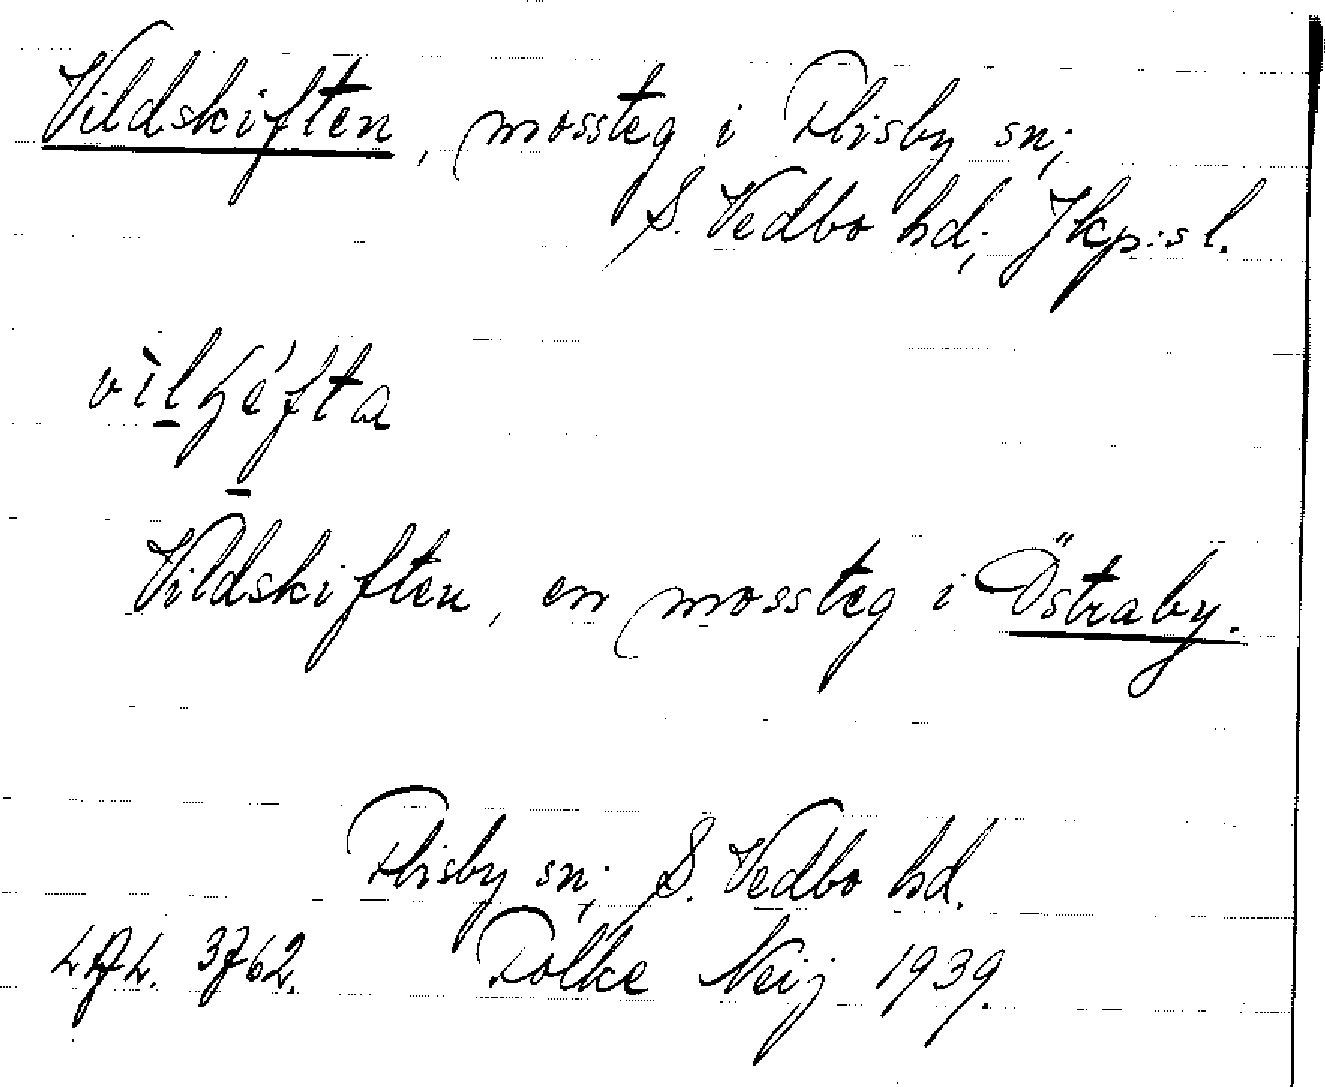 Vildskiften, mossteg i Flisby sn;
S. Vedbo hd; Jkp:s l.
vìlʃéfta
Vildskiften, en mossteg i Östraby.
Flisby sn; S. Vedbo hd.
3762. Folke Neij 1939.